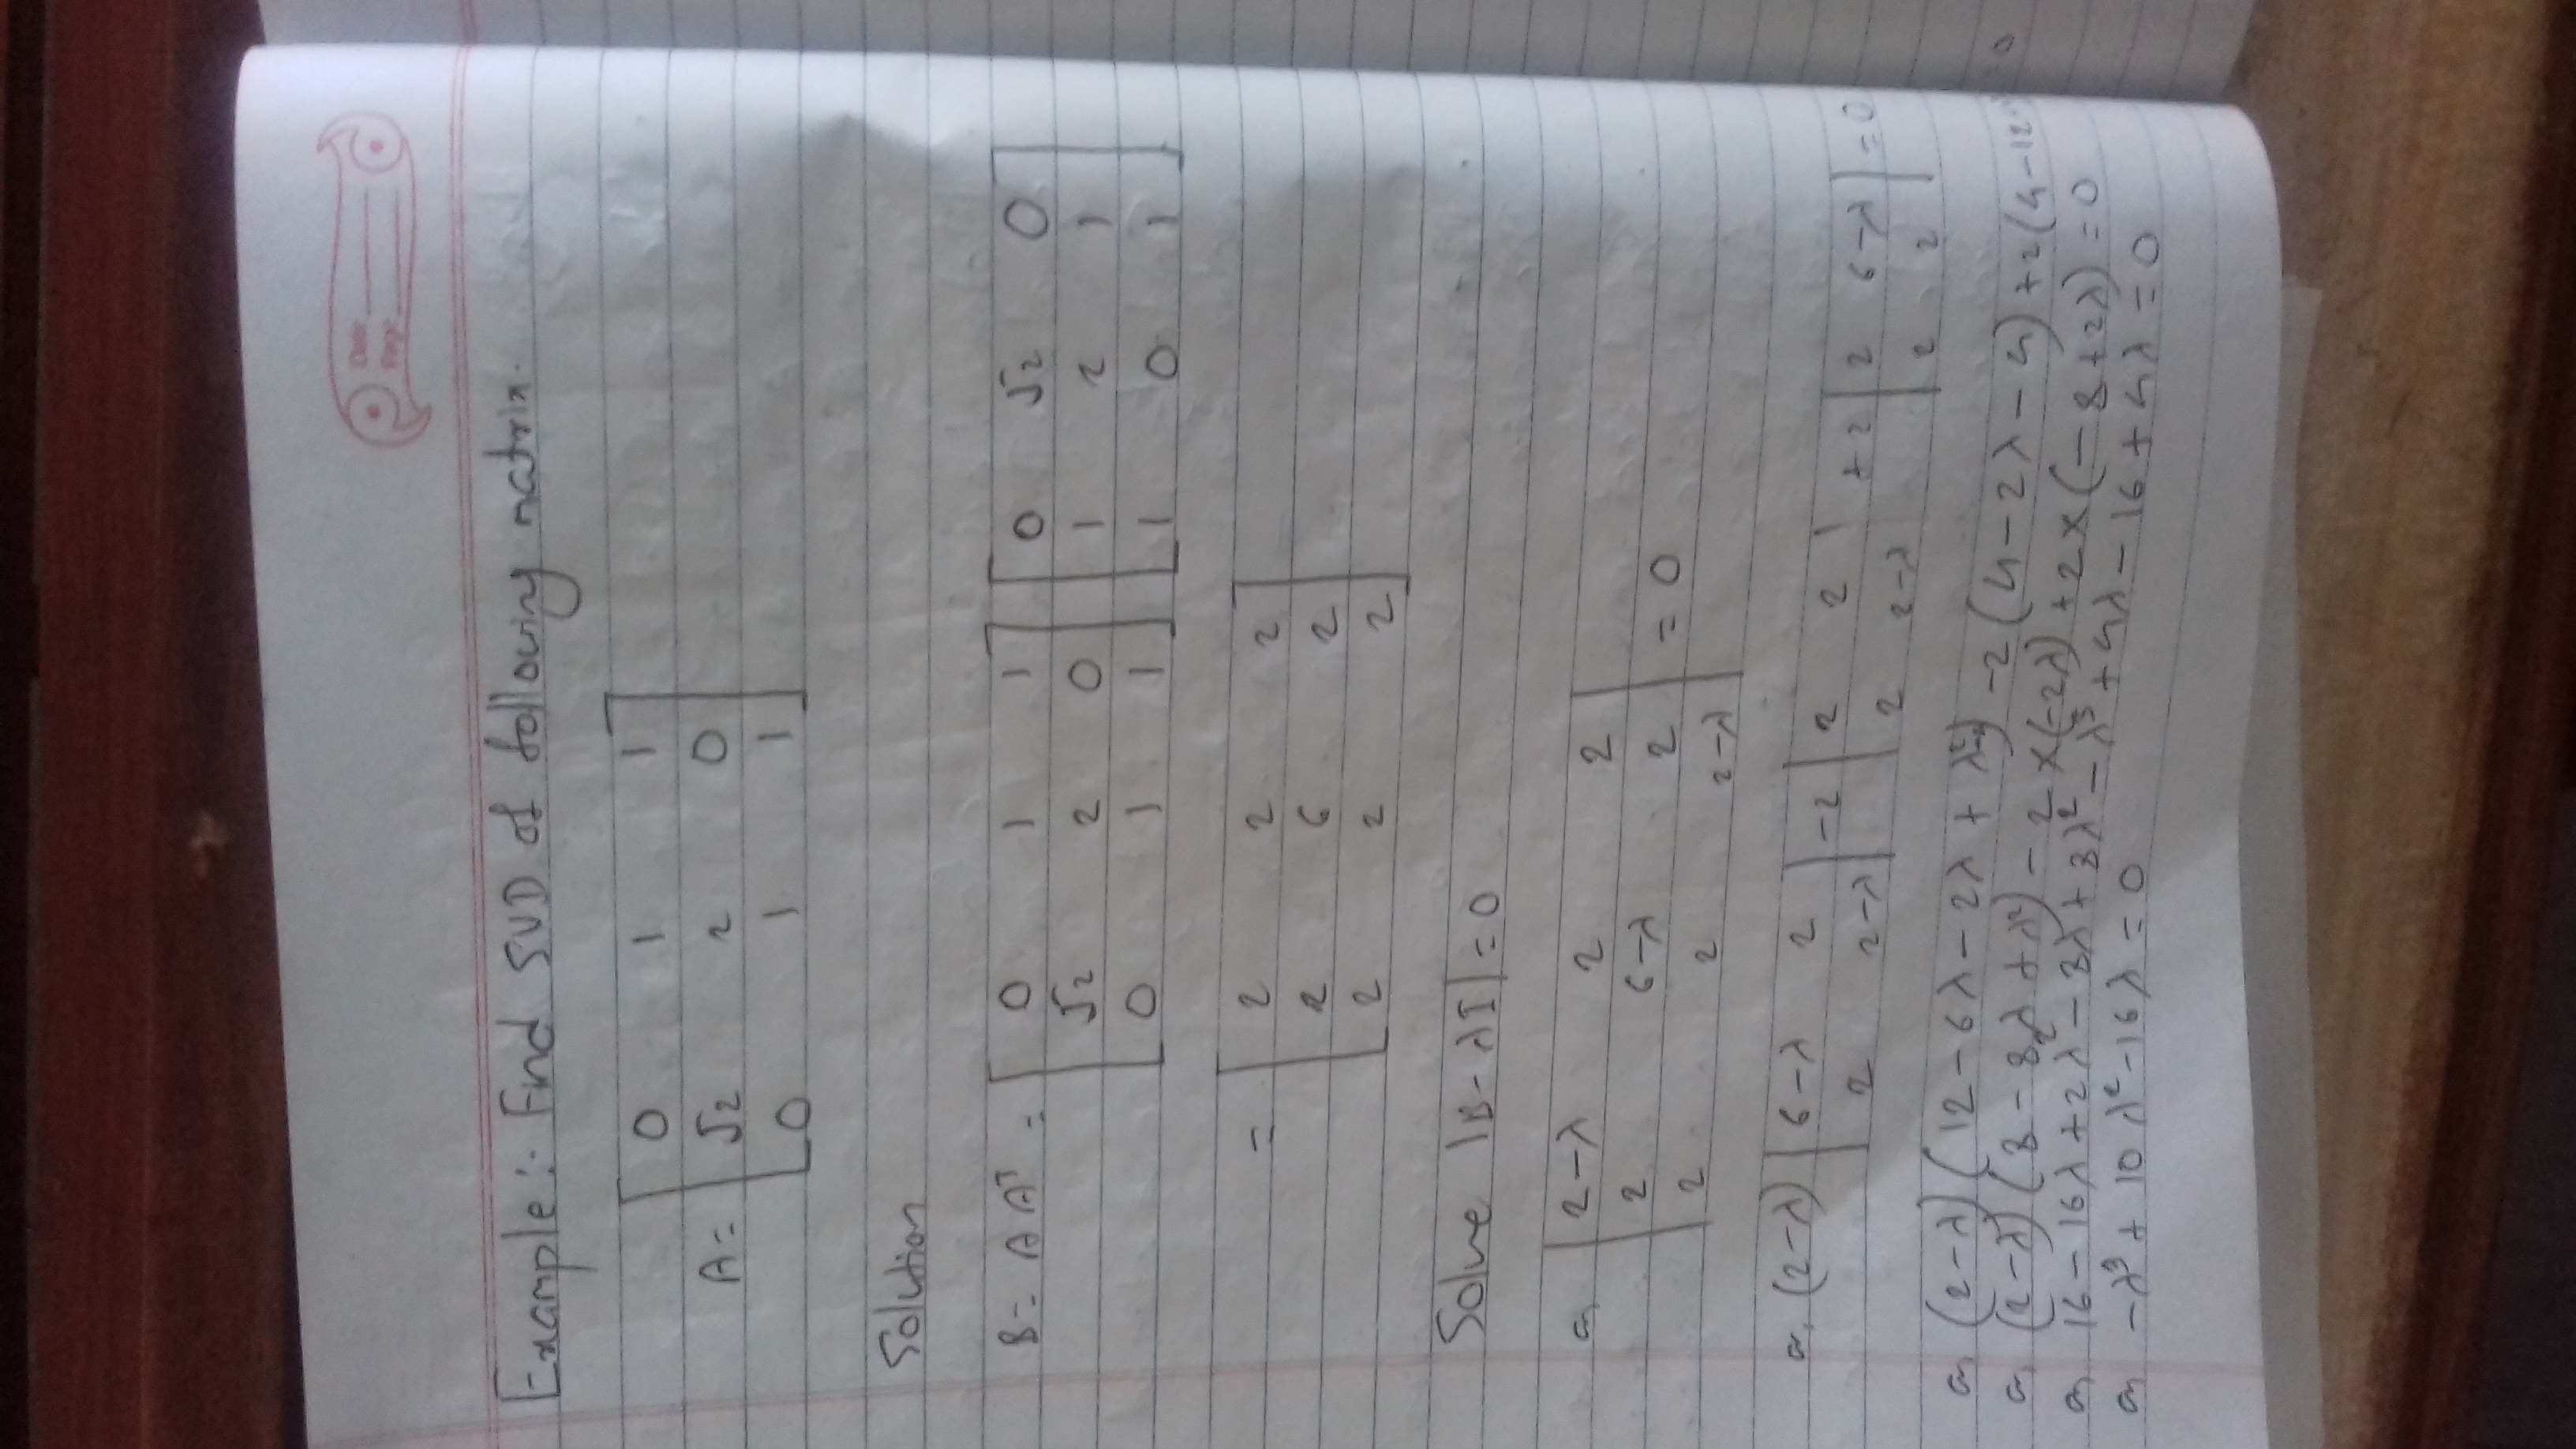 Date
Page
Example:- Find SVD of following matrix.
A = [ 0 1 1
√2 2 0
0 1 1 ]
Solution
B = A Aᵀ = [ 0 1 1 ] [ 0 √2 0 ]
[ √2 2 0 ] [ 1 2 1 ]
[ 0 1 1 ] [ 1 0 1 ]
= [ 2 2 2
2 6 2
2 2 2 ]
Solve |B - λI| = 0
or, | 2-λ 2 2 |
| 2 6-λ 2 | = 0
| 2 2 2-λ |
or, (2-λ) | 6-λ 2 | -2 | 2 2 | +2 | 2 6-λ | = 0
| 2 2-λ | | 2 2-λ | | 2 2 |
or, (2-λ) (12 - 6λ - 2λ + λ² ) -2 (4 - 2λ - 4) + 2 (4 - 12 0
or, (2-λ) (8 - 8λ + λ²) - 2 × (-2λ) + 2 × (-8 + 2λ) = 0
or, 16 - 16λ + 2λ² - 8λ + 8λ² - λ³ + 4λ - 16 + 4λ = 0
or, -λ³ + 10 λ² - 16 λ = 0